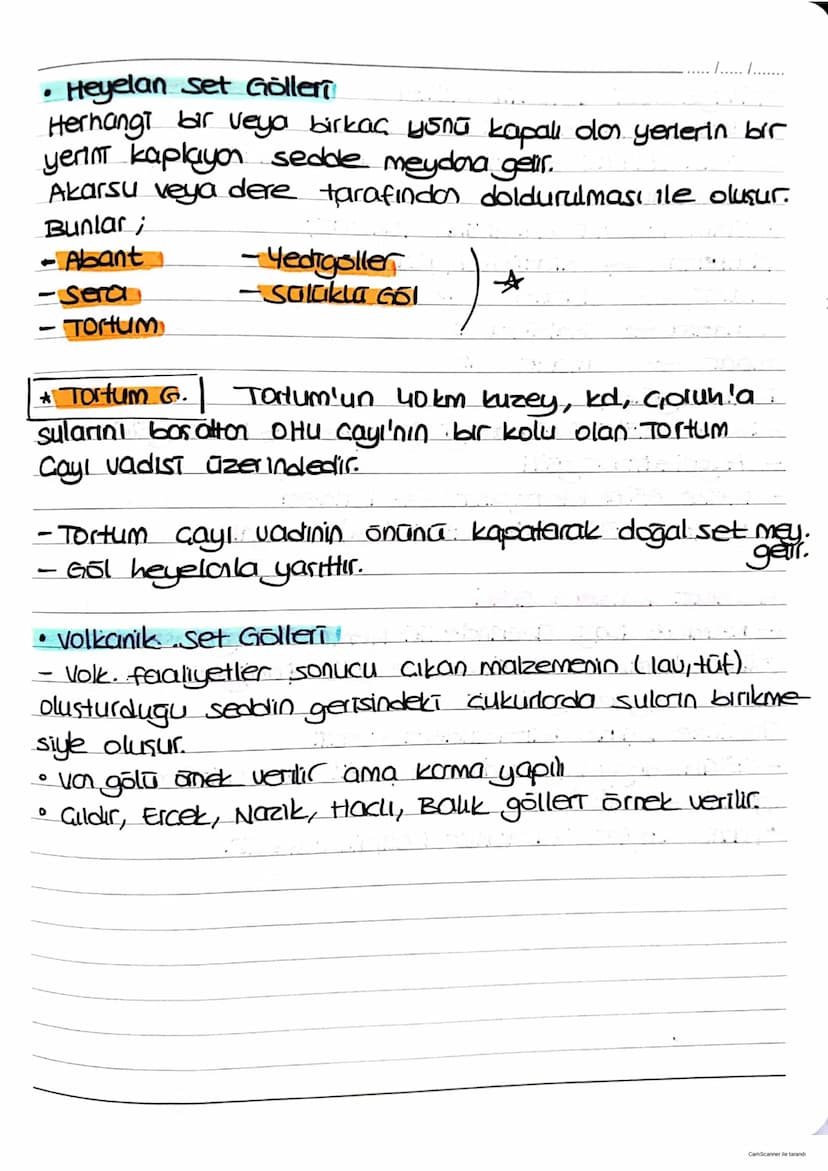 ..... /..... /.......
• Heyelan Set Gölleri
Herhangi bir veya birkaç yönü kapalı olan yerlerin bir
yerini kaplayan sedde meydana gelir.
Akarsu veya dere tarafından doldurulması ile oluşur.
Bunlar ;
- Abant - Yedigöller
- Sera - Sülüklü Göl
- Tortum
* Tortum G. Tortum'un 40 km kuzey, kd, Çoruh'a
sularını boşaltan Oltu Çayı'nın bir kolu olan Tortum
Çayı vadisi üzerindedir.
- Tortum çayı vadinin önünü kapatarak doğal set mey.
getir.
- Göl heyelanla yarıttır.
• Volkanik Set Gölleri
- Volk. faaliyetler sonucu çıkan malzemenin (lav, tüf)
oluşturduğu seddin gerisindeki çukurlarda suların birikme-
siyle oluşur.
• Van gölü örnek verilir ama karma yapılı
• Çıldır, Erçek, Nazik, Haçlı, Balık gölleri örnek verilir.
CamScanner ile tarandı